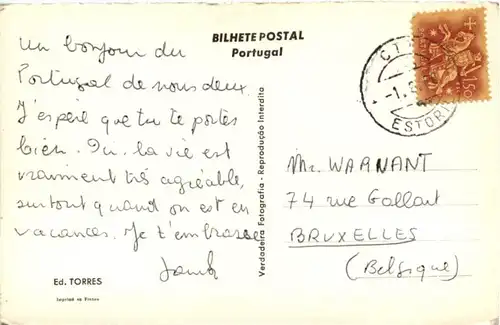 BILHETE POSTAL
Portugal
Un bonjour du
Portugal de nous deux.
J'espère que tu te portes
bien. Ici, la vie est
vraiment très agréable,
surtout quand on est en
vacances. Je t'embrasse
Ed. TORRES
Imprimé en France
Verdadeira Fotografia - Reprodução Interdita
CT
-1.
ESTORIL
Mr. WARNANT
74 rue Gallait
BRUXELLES
(Belgique)